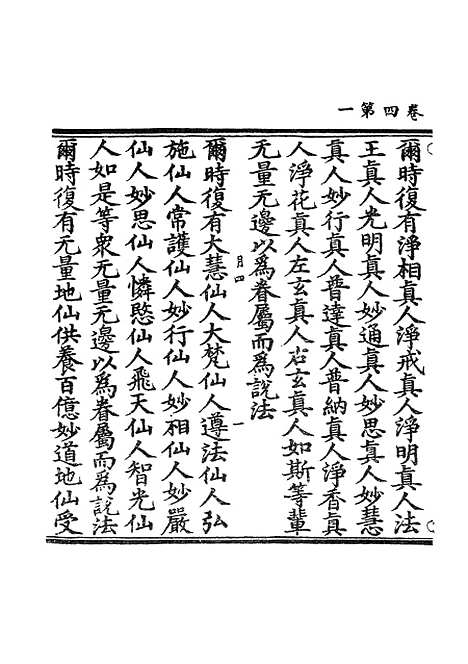 卷四第一
爾時復有淨相真人淨戒真人淨明真人法
王真人光明真人妙通真人妙思真人妙慧
真人妙行真人普達真人普納真人淨香真
人淨花真人左玄真人右玄真人如斯等輩
无量无邊以為眷屬而為說法
月四
一
爾時復有大慧仙人大梵仙人遵法仙人弘
施仙人常護仙人妙行仙人妙相仙人妙嚴
仙人妙思仙人憐愍仙人飛天仙人智光仙
人如是等眾无量无邊以為眷屬而為說法
爾時復有无量地仙供養百億妙道地仙受